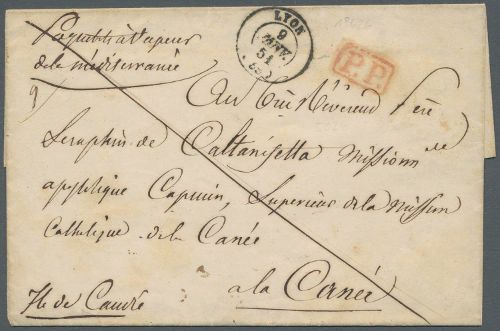 Paquebots à Vapeur
de la mediterranée
LYON
9
JANV.
51
P.P.
Au très Révérend Père
Seraphin de Caltanisetta Missionn re
appstolique Capucin, Superieur de la Mission
Catholique de la Canée
à la Canée
Ile de Candie